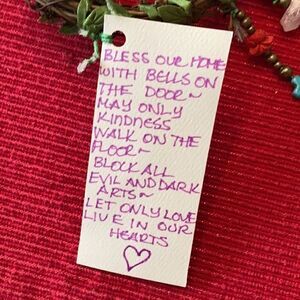 BLESS OUR HOME
WITH BELLS ON
THE DOOR~
MAY ONLY
KINDNESS
WALK ON THE
FLOOR~
BLOCK ALL
EVIL AND DARK
ARTS~
LET ONLY LOVE
LIVE IN OUR
HEARTS